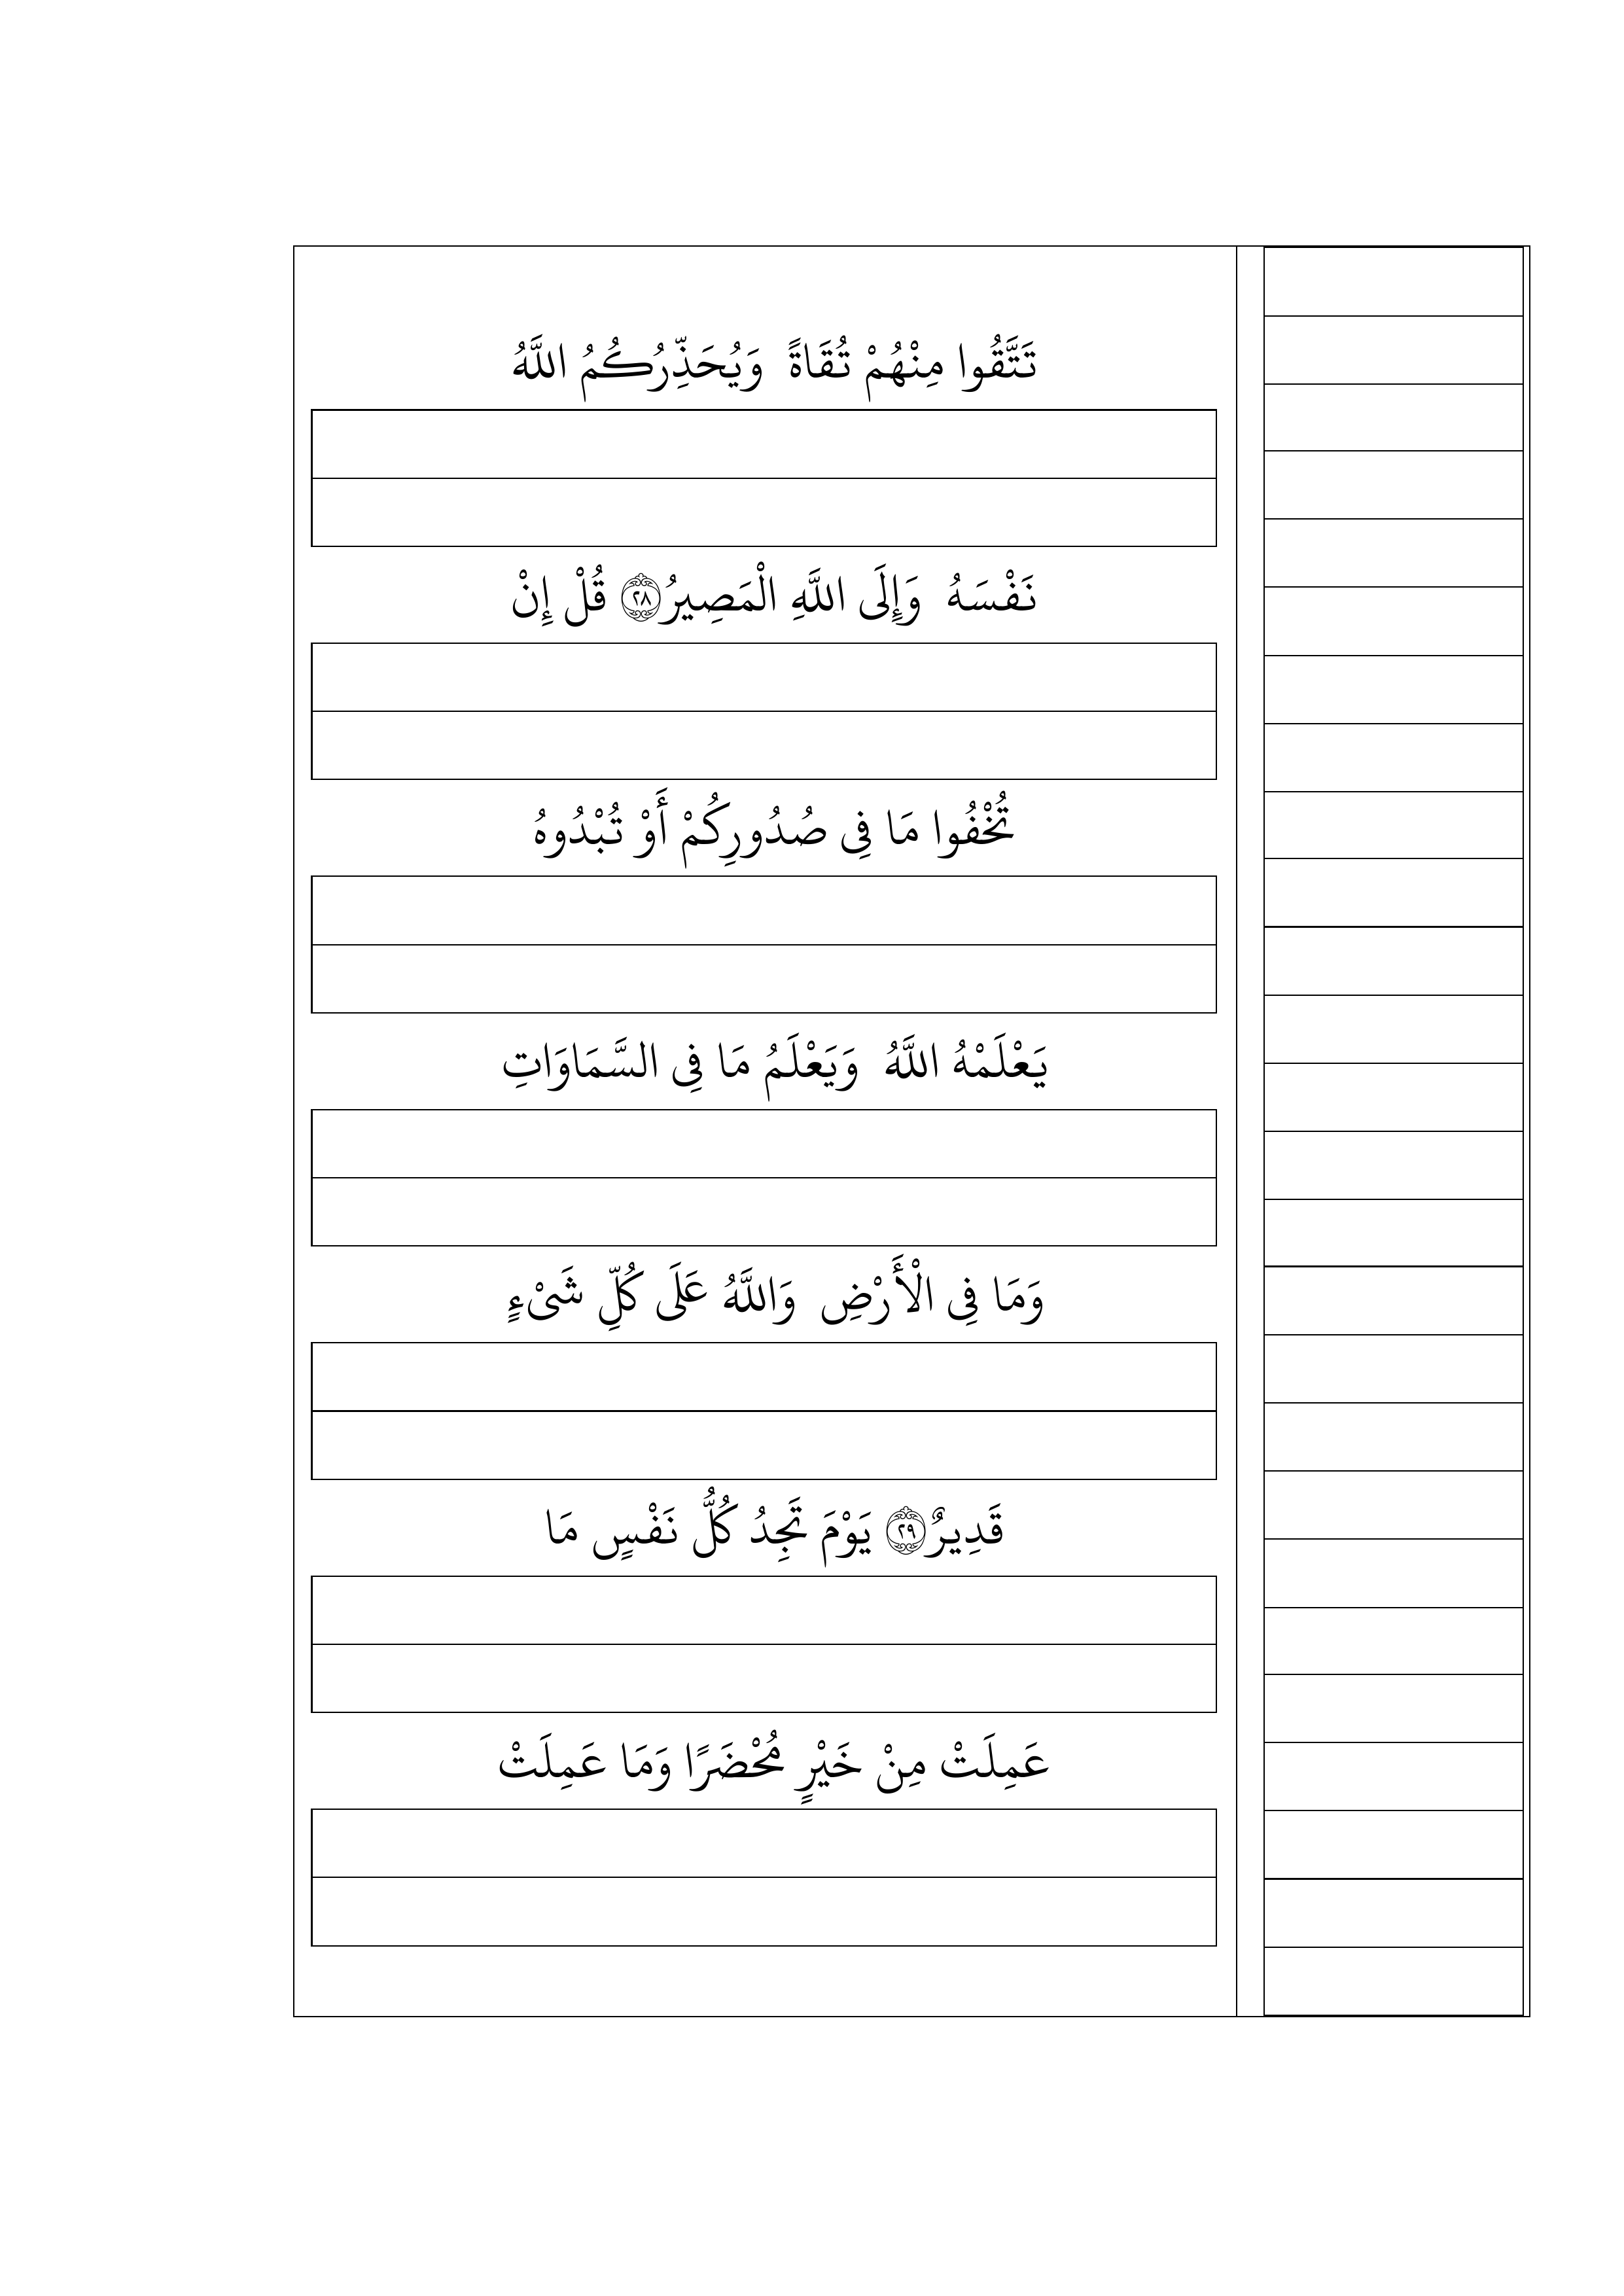 تَتَّقُوا مِنْهُمْ تُقَاةً وَيُحَذِّرُكُمُ اللَّهُ
نَفْسَهُ وَإِلَى اللَّهِ الْمَصِيرُ ۝٢٨ قُلْ إِنْ
تُخْفُوا مَا فِى صُدُورِكُمْ أَوْ تُبْدُوهُ
يَعْلَمْهُ اللَّهُ وَيَعْلَمُ مَا فِى السَّمَاوَاتِ
وَمَا فِى الْأَرْضِ وَاللَّهُ عَلَى كُلِّ شَىْءٍ
قَدِيرٌ ۝٢٩ يَوْمَ تَجِدُ كُلُّ نَفْسٍ مَا
عَمِلَتْ مِنْ خَيْرٍ مُحْضَرًا وَمَا عَمِلَتْ